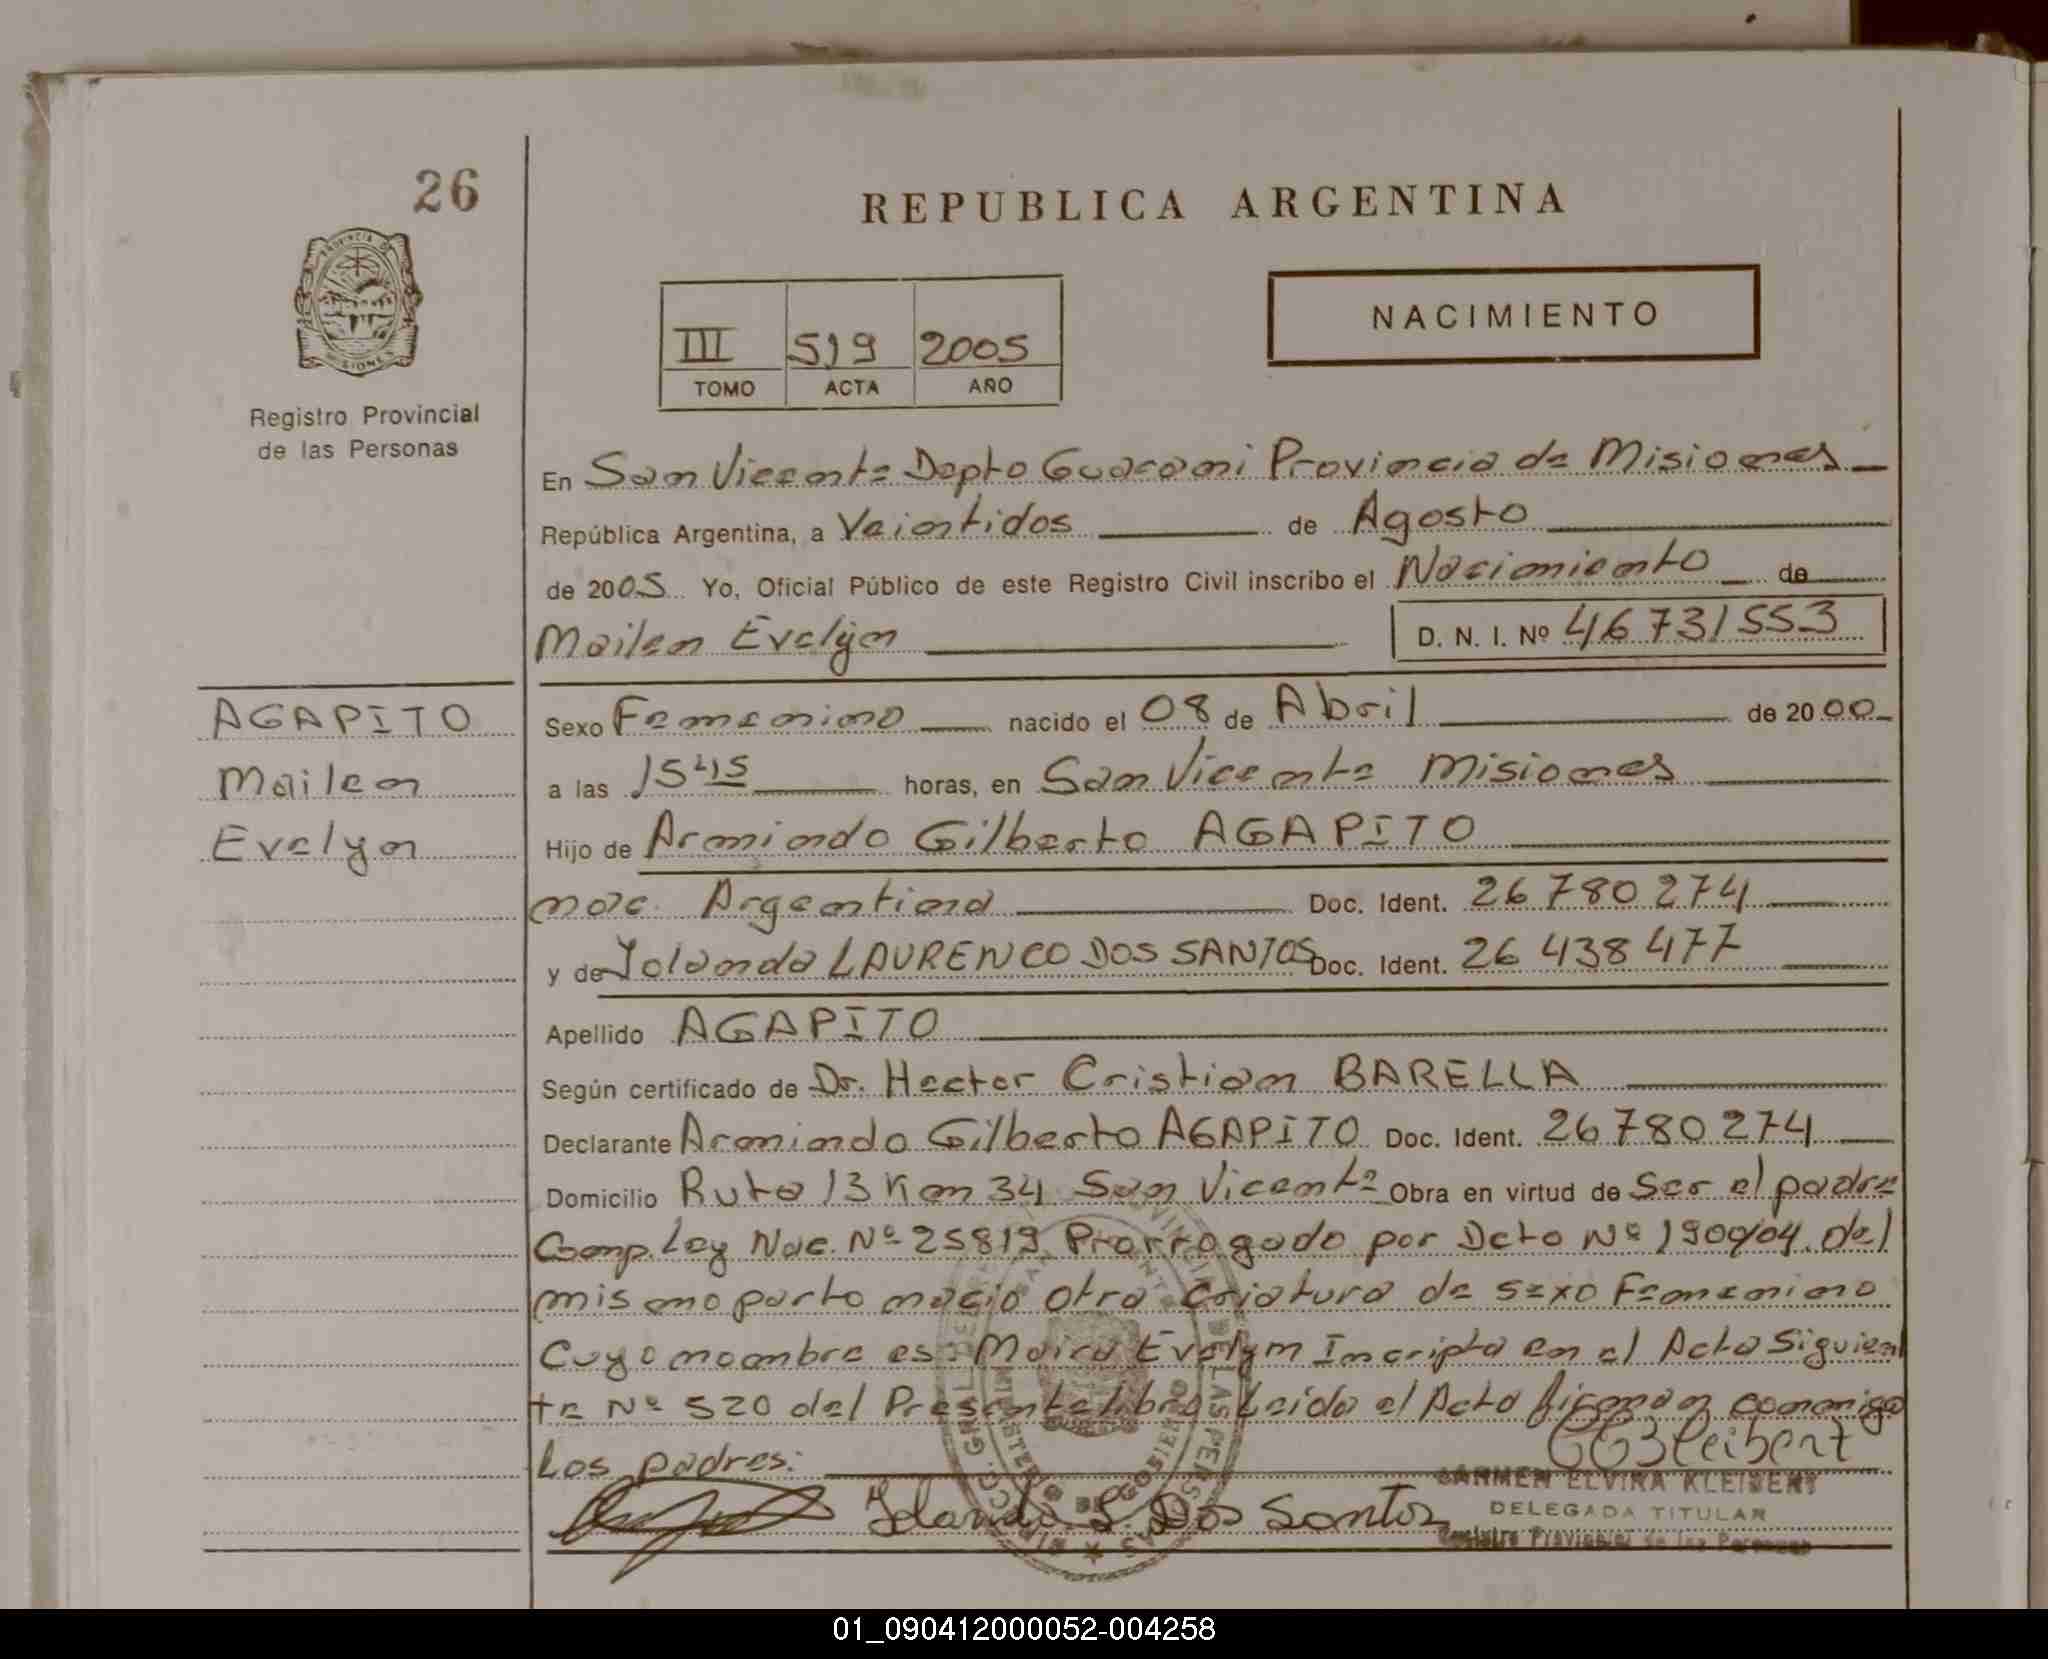 26
REPUBLICA ARGENTINA
PROVINCIA DE
MISIONES
NACIMIENTO
III 519 2005
TOMO ACTA AÑO
Registro Provincial
de las Personas
En San Vicente Depto Guarani Provincia de Misiones
República Argentina, a Veintidos de Agosto
de 2005 Yo, Oficial Público de este Registro Civil inscribo el Nacimiento de
Mailen Evelyn D. N. I. Nº 46731553
AGAPITO
Mailen
Evelyn
Sexo Femenino nacido el 08 de Abril de 2000
a las 15 45 horas, en San Vicente Misiones
Hijo de Armindo Gilberto AGAPITO
nac. Argentina Doc. Ident. 26 780 274
y de Yolanda LAURENCO DOS SANTOS Doc. Ident. 26 438 477
Apellido AGAPITO
Según certificado de Dr. Hector Cristian BARELLA
Declarante Armindo Gilberto AGAPITO Doc. Ident. 26780274
Domicilio Ruta 13 Km 34 San Vicente Obra en virtud de Ser el padre
Comp. Ley Nac. Nº 25819 Prorrogado por Dcto Nº 1900/04. del
mismo parto nacio otra Criatura de sexo Femenino
Cuyo nombre es: Maira Evelyn Inscripta en el Acta Siguien
te Nº 520 del Presente libro Leida el Acta firman conmigo
Los padres:
Yolanda L. Dos Santos
CARMEN ELVIRA KLEIBERT
DELEGADA TITULAR
Registro Provincial de las Personas
01_090412000052-004258